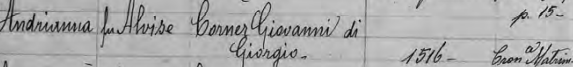 Andrianna fu Alvise Corner Giovanni di p. 15-
Giorgio- 1516- Cron.ª Matrim.